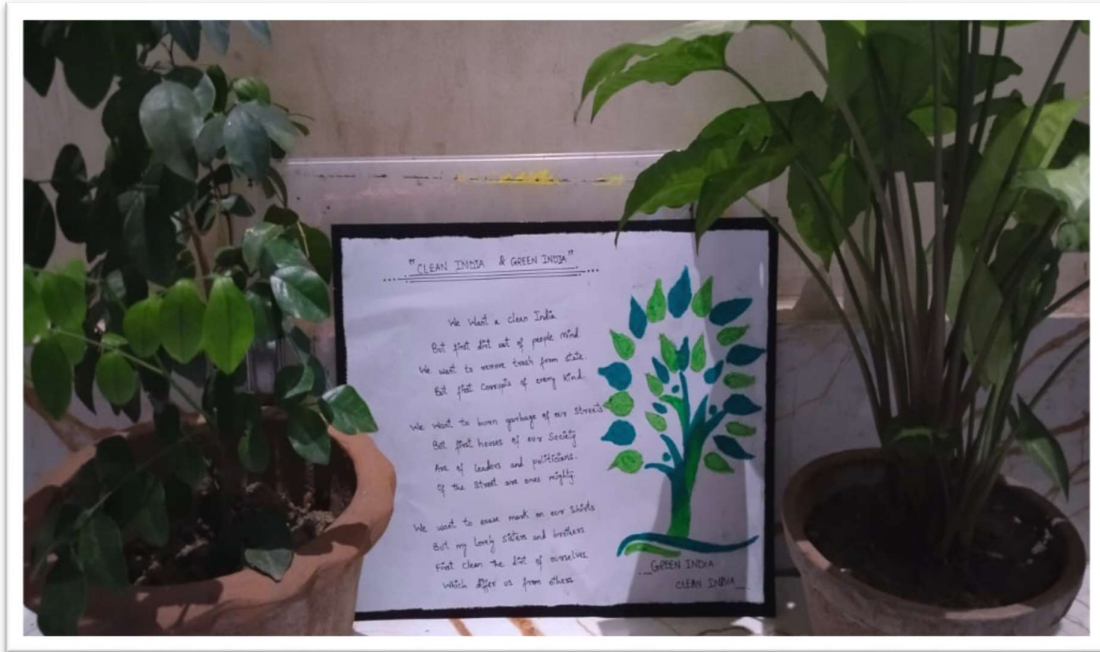 "CLEAN INDIA & GREEN INDIA"
We Want a clean India
But first dirt out of people mind.
We want to remove trash from state.
But first Corrupts of every kind.
We want to burn garbage of our streets
But first houses of our Society
Are of leaders and politicians.
If the Street are ones mighty.
We want to erase mark on our shirts
But my lovely sisters and brothers
First clean the dirt of ourselves.
Which differ us from others
GREEN INDIA
CLEAN INDIA